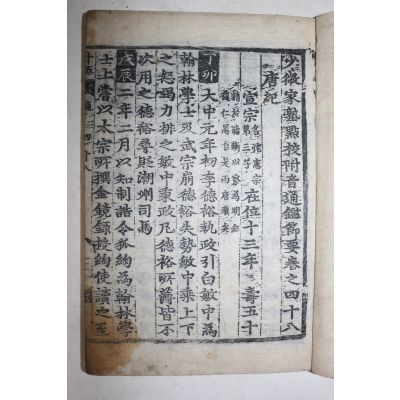 少微家塾點校附音通鑑節要卷之四十八
唐紀
宣宗 在位十三年 壽五十
丁卯 大中元年初李德裕執政引白敏中為
翰林學士及武宗崩德裕失勢敏中乘上下
之怒竭力排之敏中秉政凡德裕所薄皆不
次用之德裕尋貶潮州司馬
戊辰 二年二月以知制誥令狐綯為翰林學
士上嘗以太宗所撰金鏡錄授綯使讀之至